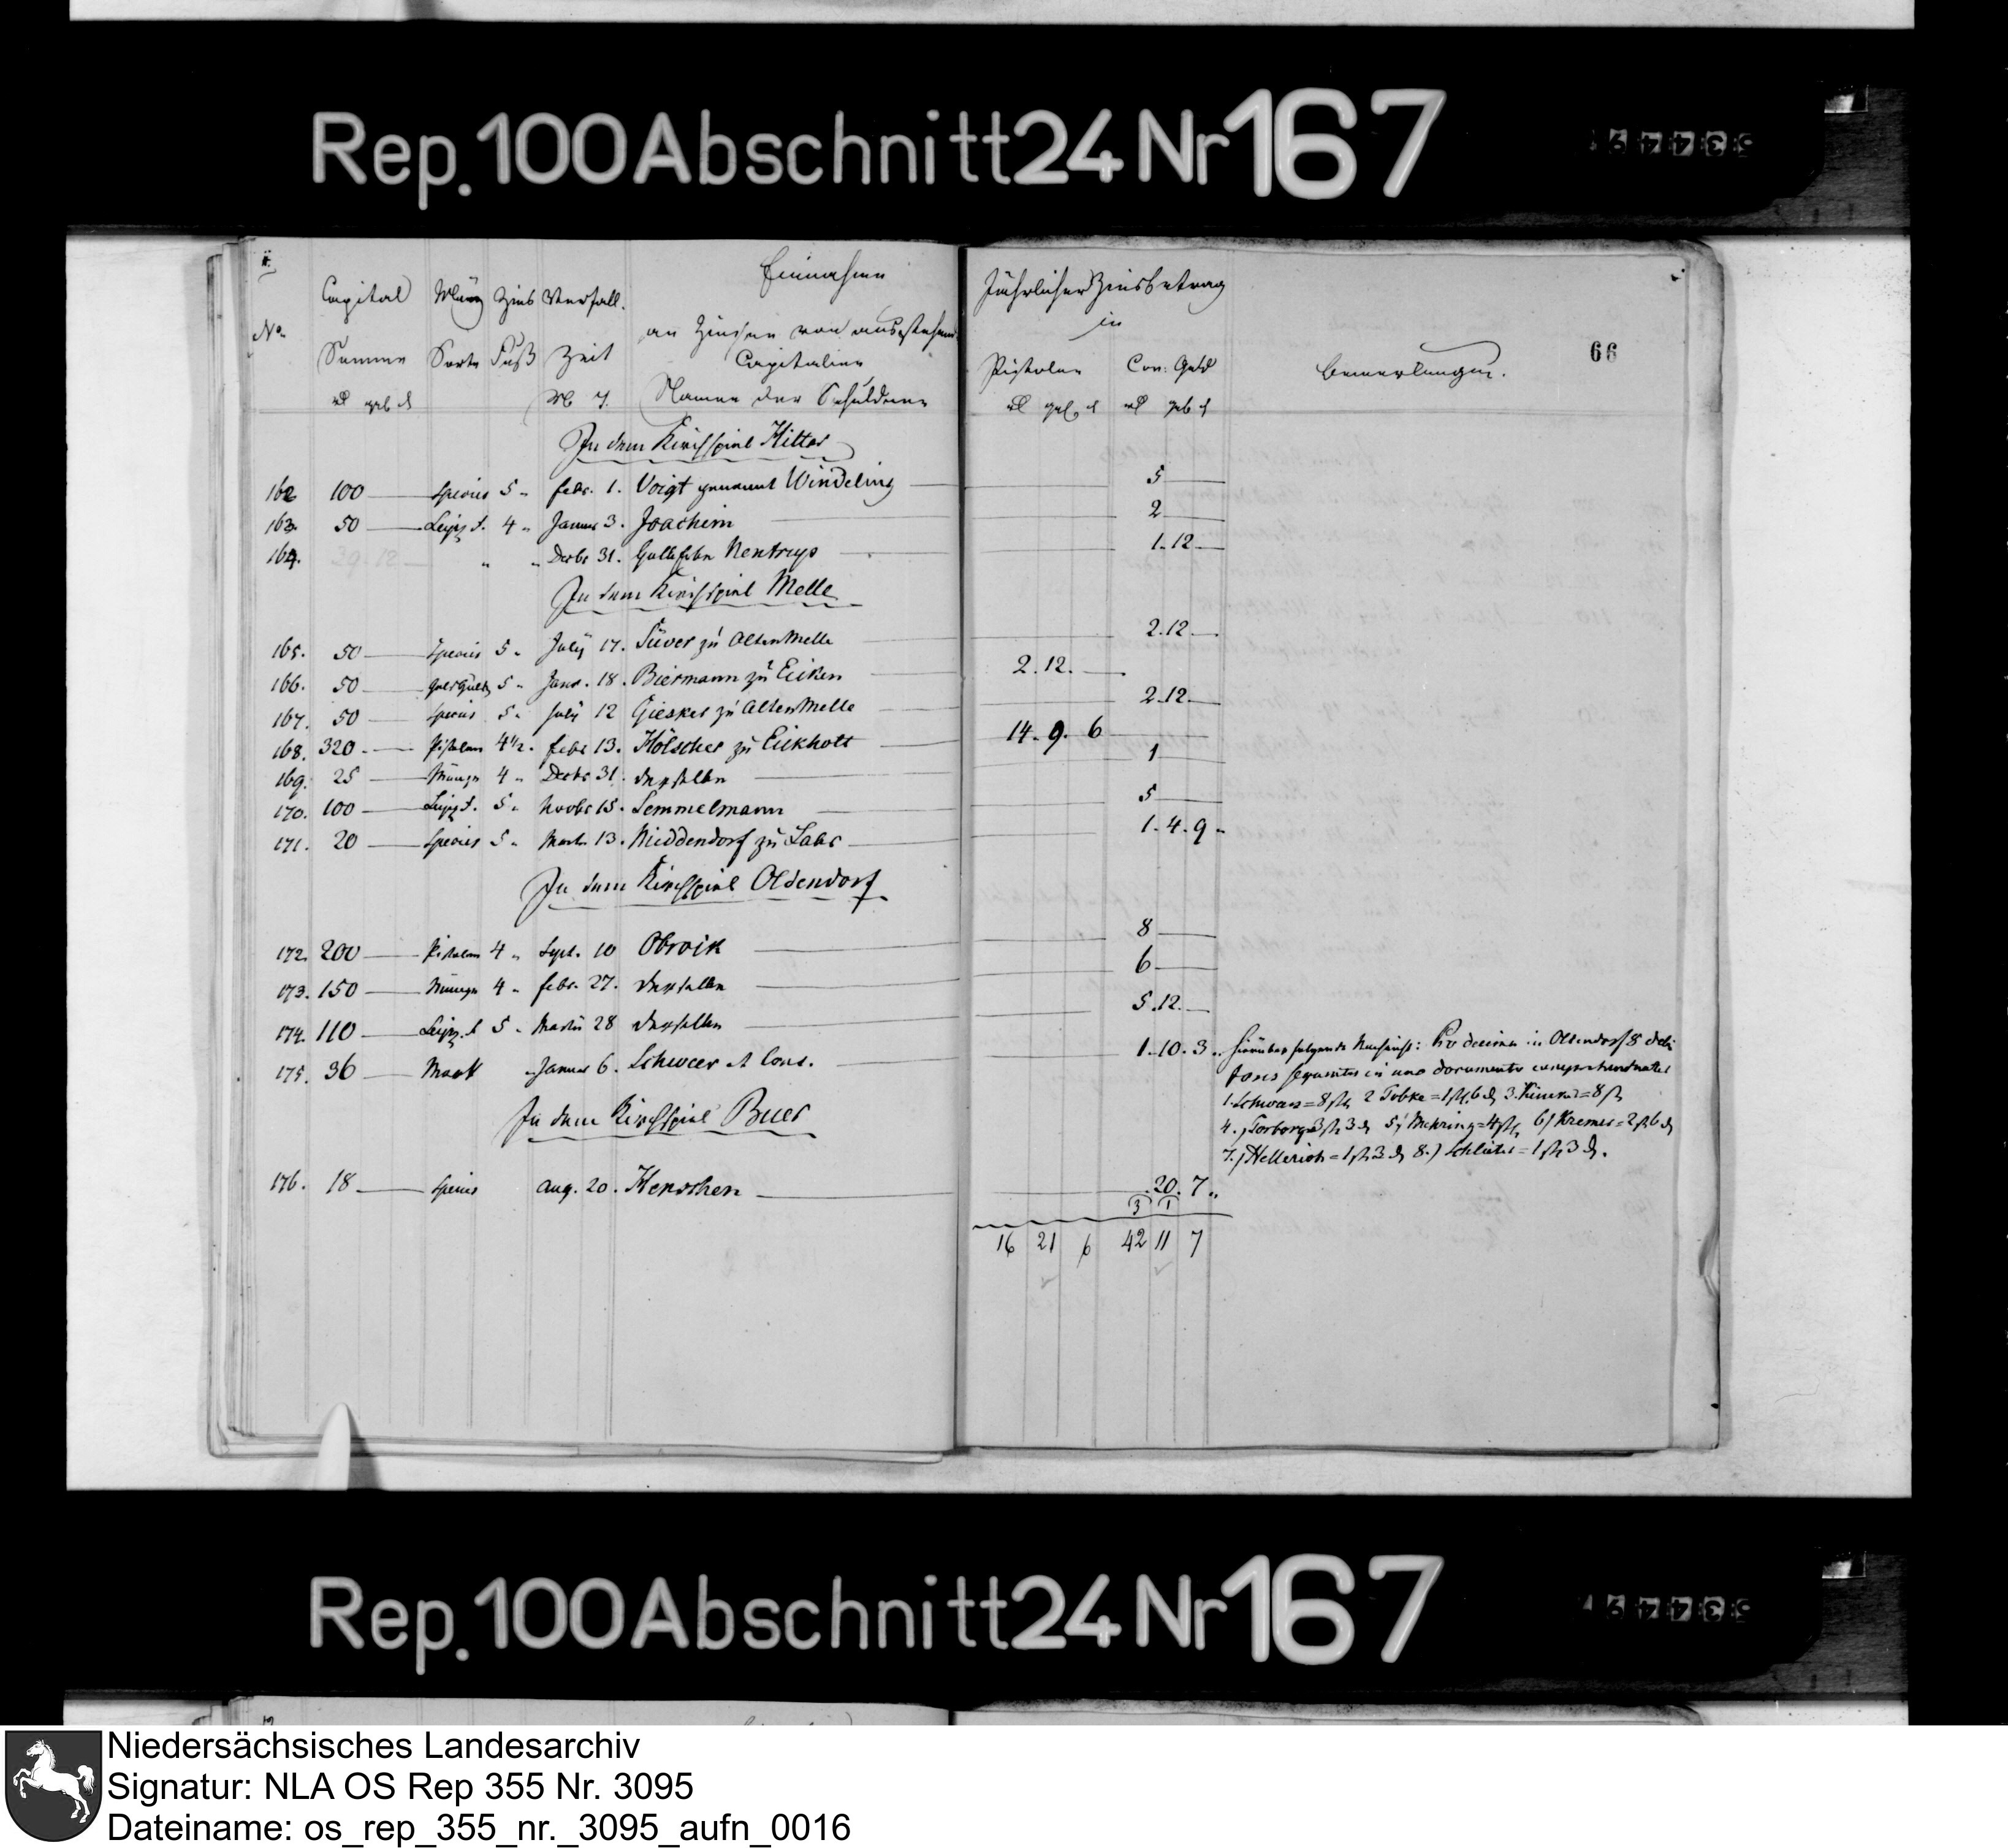 Rep. 100 Abschnitt 24 Nr 167
53449
Einnahme
an Zinsen von ausstehenden
Capitalien
Namen der Schuldner
No.
Capital Münz Zins Verfall
Summe Sorte Fuß Zeit
Jährlicher Zinsbetrag
in
Pistolen Con: Geld
Bemerkungen.
66
In dem Kirchspiel Hilter
162 100 Species 5 Febr. 1. Voigt genannt Windeling 5
163. 50 Leipz. 4 Januar 3. Joachim 2
164. 39.12 " " Decbr 31. Nentrup 1.12
In dem Kirchspiel Melle
165. 50 Species 5 July 17. Süver zu Altenmelle 2.12
166. 50 5 Janr. 18. Biermann zu Eicken 2.12.
167. 50 Species 5 July 12 Giesker zu Altenmelle 2.12
168. 320 Pistolen 4½ Febr 13. Hölscher zu Eickholt 14. 9. 6
169. 25 Münze 4 Decbr 31. derselbe 1
170. 100 Leipz. 5 Novbr 15. Semmelmann 5
171. 20 Species 5 Martii 13. Middendorf zu Laer 1. 4. 9
In dem Kirchspiel Oldendorf
172. 200 Pistolen 4 Sept. 10 Obrock 8
173. 150 Münze 4 Febr. 27. derselbe 6
174. 110 Leipz. 5 Martii 28 derselbe 5.12
175. 36 Mark Januar 6. Schweer et Cons. 1.10.3
Hierüber folgende Nachricht: Pro decima in Oldendorf 8 debi
tores sequentes in uno documento comprehenduntur
1. Schwarz = 8 ß 2 Tobke = 1 ß 6 d 3. = 8 ß
4.) Torborg 3 ß 3 d 5) Mehring = 4 ß 6) Kremer = 2 ß 6 d
7.) Hellerich = 1 ß 3 d 8.) = 1 ß 3 d.
In dem Kirchspiel Buer
176. 18 Species Aug. 20. Henschen 20. 7
3 1
16 21 6 42 11 7
Rep. 100 Abschnitt 24 Nr 167
53449
Niedersächsisches Landesarchiv
Signatur: NLA OS Rep 355 Nr. 3095
Dateiname: os_rep_355_nr._3095_aufn_0016